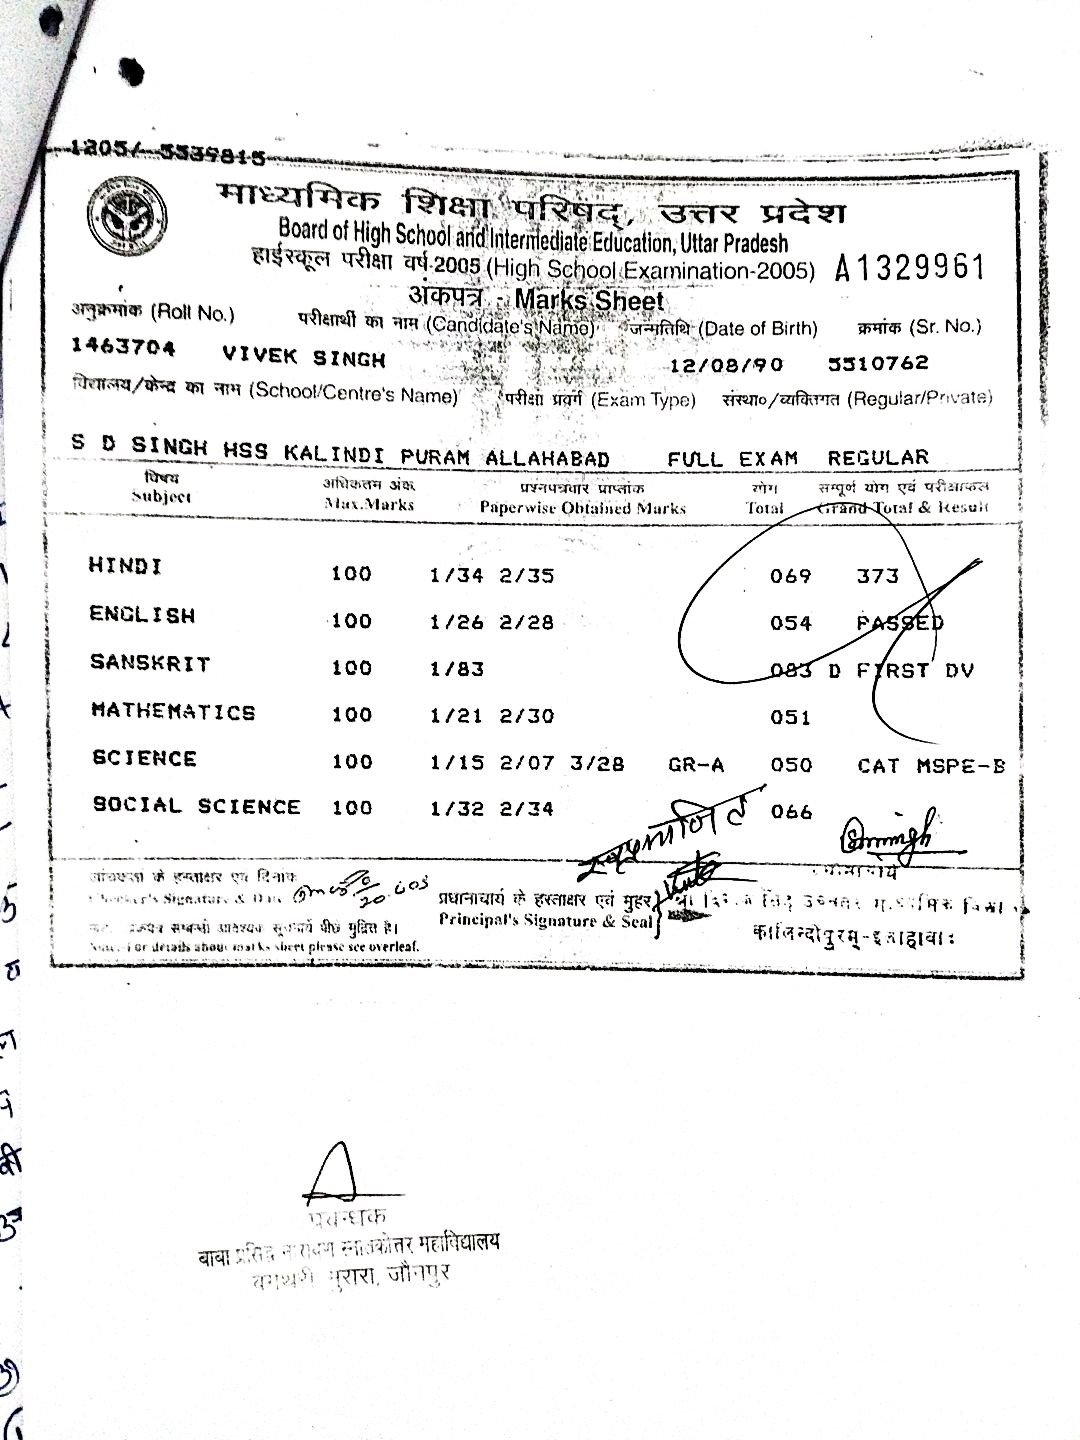 1205/ 5539815
माध्यमिक शिक्षा परिषद्, उत्तर प्रदेश
Board of High School and Intermediate Education, Uttar Pradesh
हाईस्कूल परीक्षा वर्ष-2005 (High School Examination-2005) A1329961
अंकपत्र - Marks Sheet
अनुक्रमांक (Roll No.) परीक्षार्थी का नाम (Candidate's Name) जन्मतिथि (Date of Birth) क्रमांक (Sr. No.)
1463704 VIVEK SINGH 12/08/90 5510762
विद्यालय/केन्द्र का नाम (School/Centre's Name) परीक्षा प्रवर्ग (Exam Type) संस्था०/व्यक्तिगत (Regular/Private)
S D SINGH HSS KALINDI PURAM ALLAHABAD FULL EXAM REGULAR
विषय अधिकतम अंक प्रश्नपत्रवार प्राप्तांक योग सम्पूर्ण योग एवं परीक्षाफल
Subject Max.Marks Paperwise Obtained Marks Total Grand Total & Result
HINDI 100 1/34 2/35 069 373
ENGLISH 100 1/26 2/28 054 PASSED
SANSKRIT 100 1/83 083 D FIRST DV
MATHEMATICS 100 1/21 2/30 051
SCIENCE 100 1/15 2/07 3/28 GR-A 050 CAT MSPE-B
SOCIAL SCIENCE 100 1/32 2/34 066
के हस्ताक्षर एवं दिनांक
Checker's Signature & Date
प्रधानाचार्य के हस्ताक्षर एवं मुहर
Principal's Signature & Seal
प्रधानाचार्य
सिंह उच्चतर माध्यमिक
कालिन्दीपुरम्-इलाहाबाद
अंकपत्र सम्बन्धी आवश्यक सूचनायें पीछे मुद्रित है।
Note: For details about marks sheet please see overleaf.
प्रबन्धक
बाबा प्रसिद्ध नारायण स्नातकोत्तर महाविद्यालय
जौनपुर